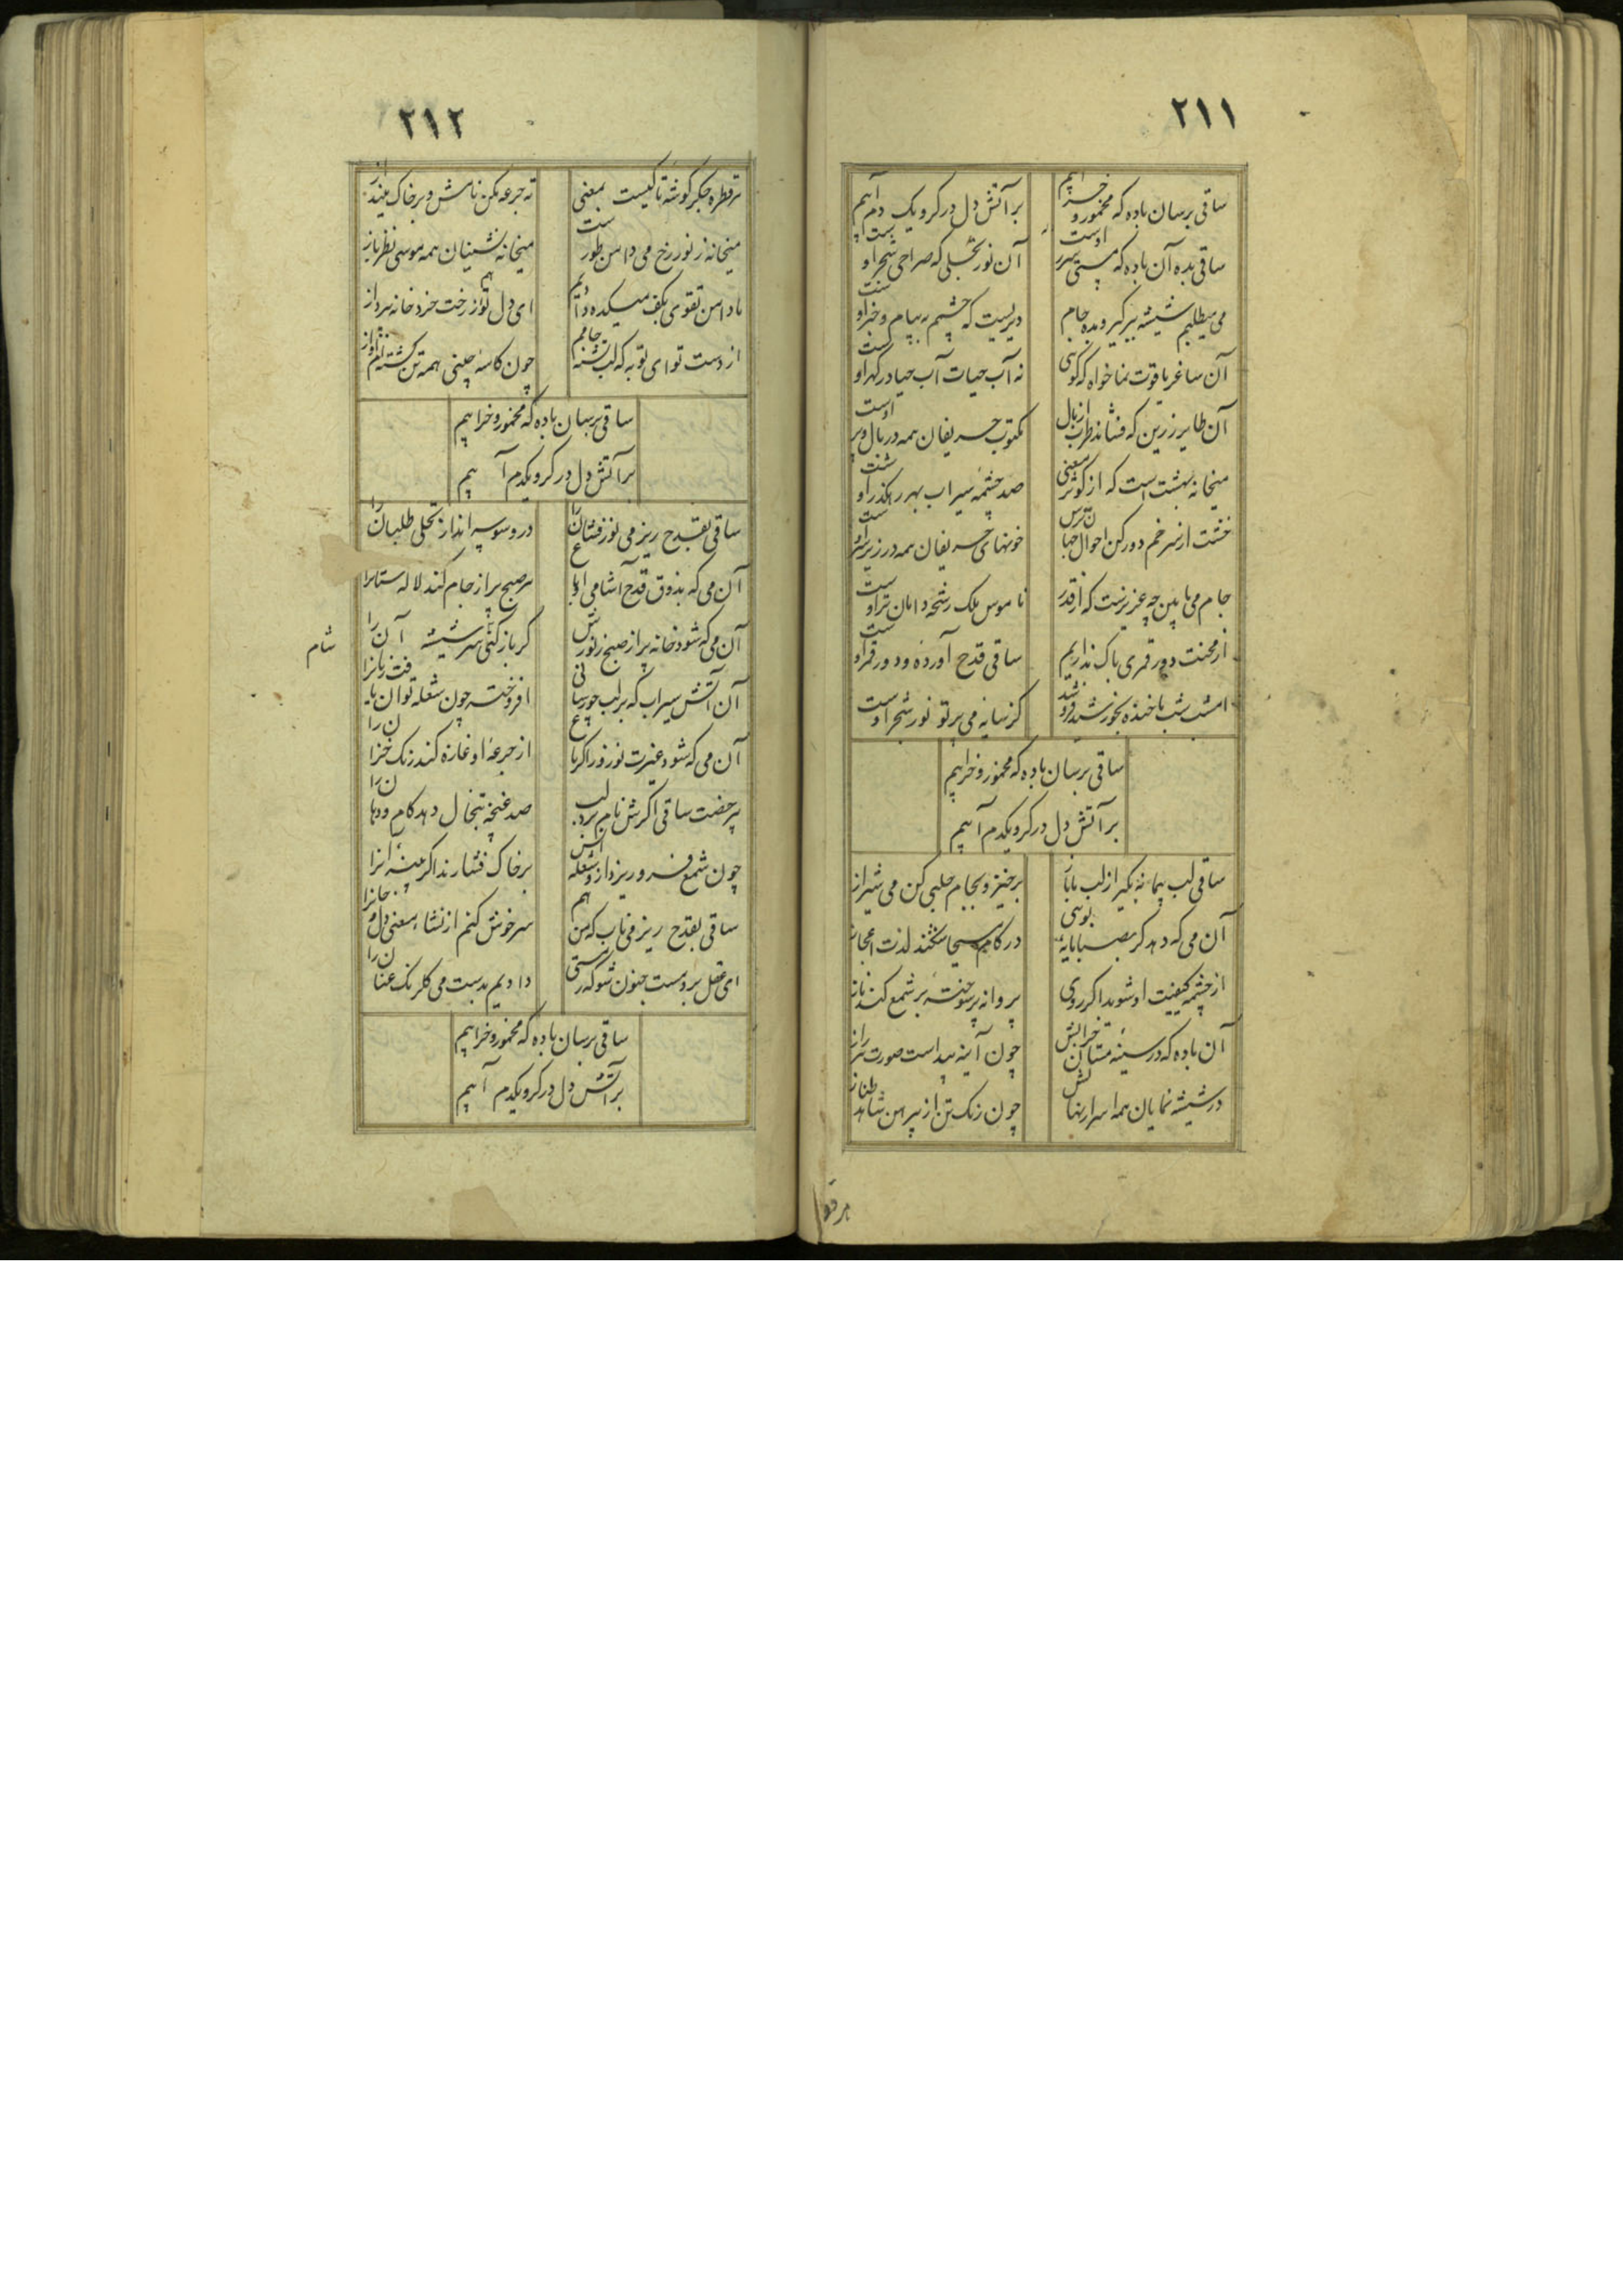 ۲۱۱
ساقی برسان باده که مخمور و خرابیم
بر آتش دل در گرو یک دم آبیم
ساقی بده آن باده که مستی ثمر اوست
آن نور تجلی که صراحی شجر اوست
می میطلبم شیشه ببر گیر و بده جام
دیریست که چشمم به پیام و خبر اوست
آن ساغر یاقوت نما خواه که گوئی
نه آب حیات آب حیا در گهر اوست
آن طایر زرین که فشاند طرب از بال
مکتوب حریفان همه در بال و پر اوست
میخانه بهشت است که از کوثر معنی
صد چشمه سیراب بهر رهگذر اوست
خشت از سر خم دور کن احوال جهان پرس
خونهای حریفان همه در زیر سر اوست
جام می ما بین چه عزیزست که از قدر
ناموس ملک رشحه دامان تر اوست
از محنت دور قمری باک نداریم
ساقی قدح آورده و دور قمر اوست
امشب شب ما خنده بخورشید فروشد
کز سایه می پرتو نور سحر اوست
ساقی برسان باده که مخمور و خرابیم
بر آتش دل در گرو یکدم آبیم
ساقی لب پیمانه بگیر از لب ما باز
برخیز و بجام حلبی کن می شیراز
آن می که دهد گر بصبا مایه بوئی
در کام مسیحا شکند لذت اعجاز
از چشمه کیفیت او شوید اگر روی
پروانه پر سوخته بر شمع کند ناز
آن باده که در سینه مستان خرابش
چون آینه پیداست صورت راز
در شیشه نمایان همه اسرار نهانش
چون رنگ تن از پیرهن شاهد طناز
هر قطره
۲۱۲
هر قطره جگر گوشه تاکیست بمعنی
ته جرعه مکن نامش و بر خاک مینداز
میخانه ز نور رخ می دامن طور ست
میخانه نشینان همه موسی نظر باز
ما دامن تقوی بکف میکده دادیم
ای دل تو هم از رخت خرد خانه بپرداز
از دست تو ای توبه که لب تشنه جامم
چون کاسه چینی همه تن گشته‌ام آواز
ساقی برسان باده که مخمور و خرابیم
بر آتش دل در گرو یکدم آبیم
ساقی بقدح ریز می نور فشان را
در وسوسه انداز تجلی طلبان را
آن می که بذوق قدح آشامی او باغ
هر صبح پر از جام کند لاله ستانرا
آن می که شود خانه پر از صبح ز نورش
گر باز کنی سر شیشه آن را
شام
آن آتش سیراب که بر لب چو رسانی
افروخته چون شعله توان یافت زبانرا
آن می که شود غیرت نوروز اگر باغ
از جرعه او غازه کند رنگ خزان را
بر حضرت ساقی اگرش نام برد لب
صد غنچه تبخال دهد کام و دهان را
چون شمع فرو ریزد ازو شعله
بر خاک فشارند اگر پنبه آنرا
ساقی بقدح ریز می ناب که من هم
سر خوش کنم از نشاء معنی دل و جانرا
ای عقل برو مست جنون شو که ز مستی
دادیم بدست می گلرنگ عنان را
ساقی برسان باده که مخمور و خرابیم
بر آتش دل در گرو یکدم آبیم